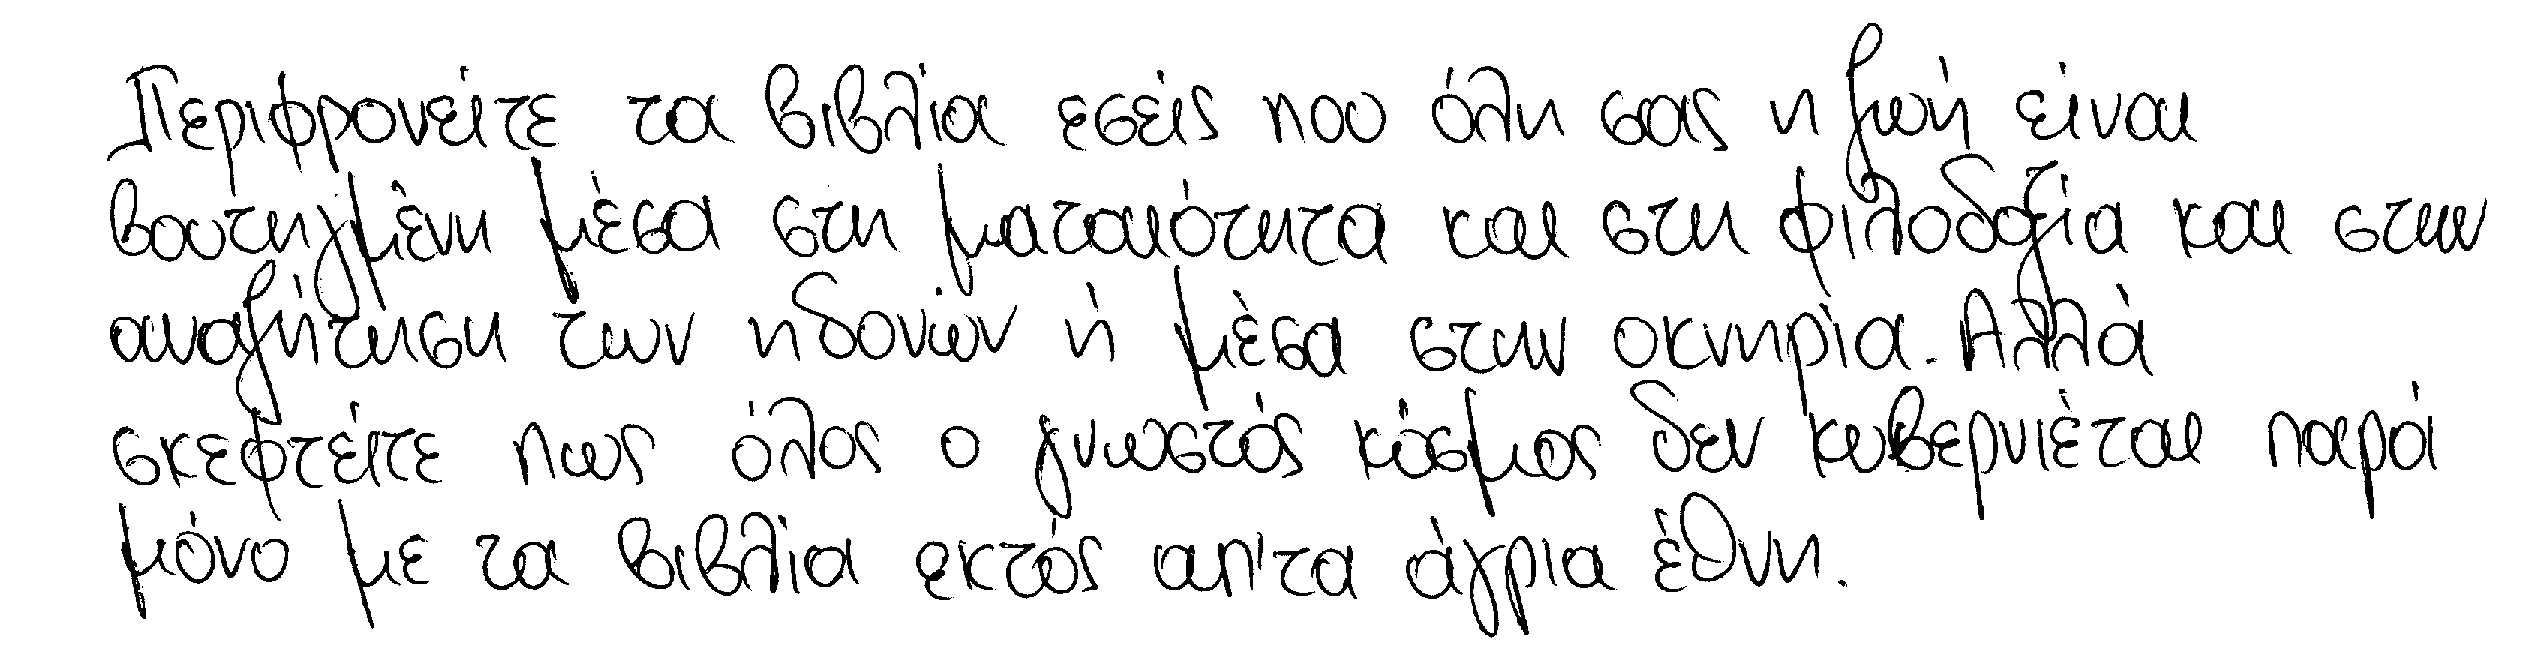 Περιφρονείτε τα βιβλία εσείς που όλη σας η ζωή είναι
βουτηγμένη μέσα στη ματαιότητα και στη φιλοδοξία και στην
αναζήτηση των ηδονών ή μέσα στην οκνηρία. Αλλά
σκεφτείτε πως όλος ο γνωστός κόσμος δεν κυβερνιέται παρά
μόνο με τα βιβλία εκτός απ'τα άγρια έθνη.